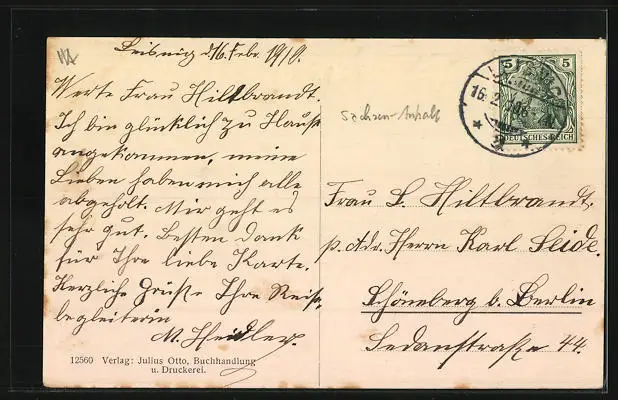 Leisnig d. 16. Febr. 1910.
Werte Frau Hiltbrandt.
Ich bin glücklich zu Hause
angekommen, meine
Lieben haben mich alle
abgeholt. Mir geht es
sehr gut. Besten Dank
für Ihre liebe Karte.
Herzliche Grüße Ihre Reise-
begleiterin
M. Heidler.
12560 Verlag: Julius Otto, Buchhandlung
u. Druckerei.
Sachsen-Anhalt
5 5
DEUTSCHES REICH
LEISNIG
16. 2.
Frau L. Hiltbrandt.
p. Adr. Herrn Karl Seide.
Schöneberg b. Berlin
Sedanstraße 44.